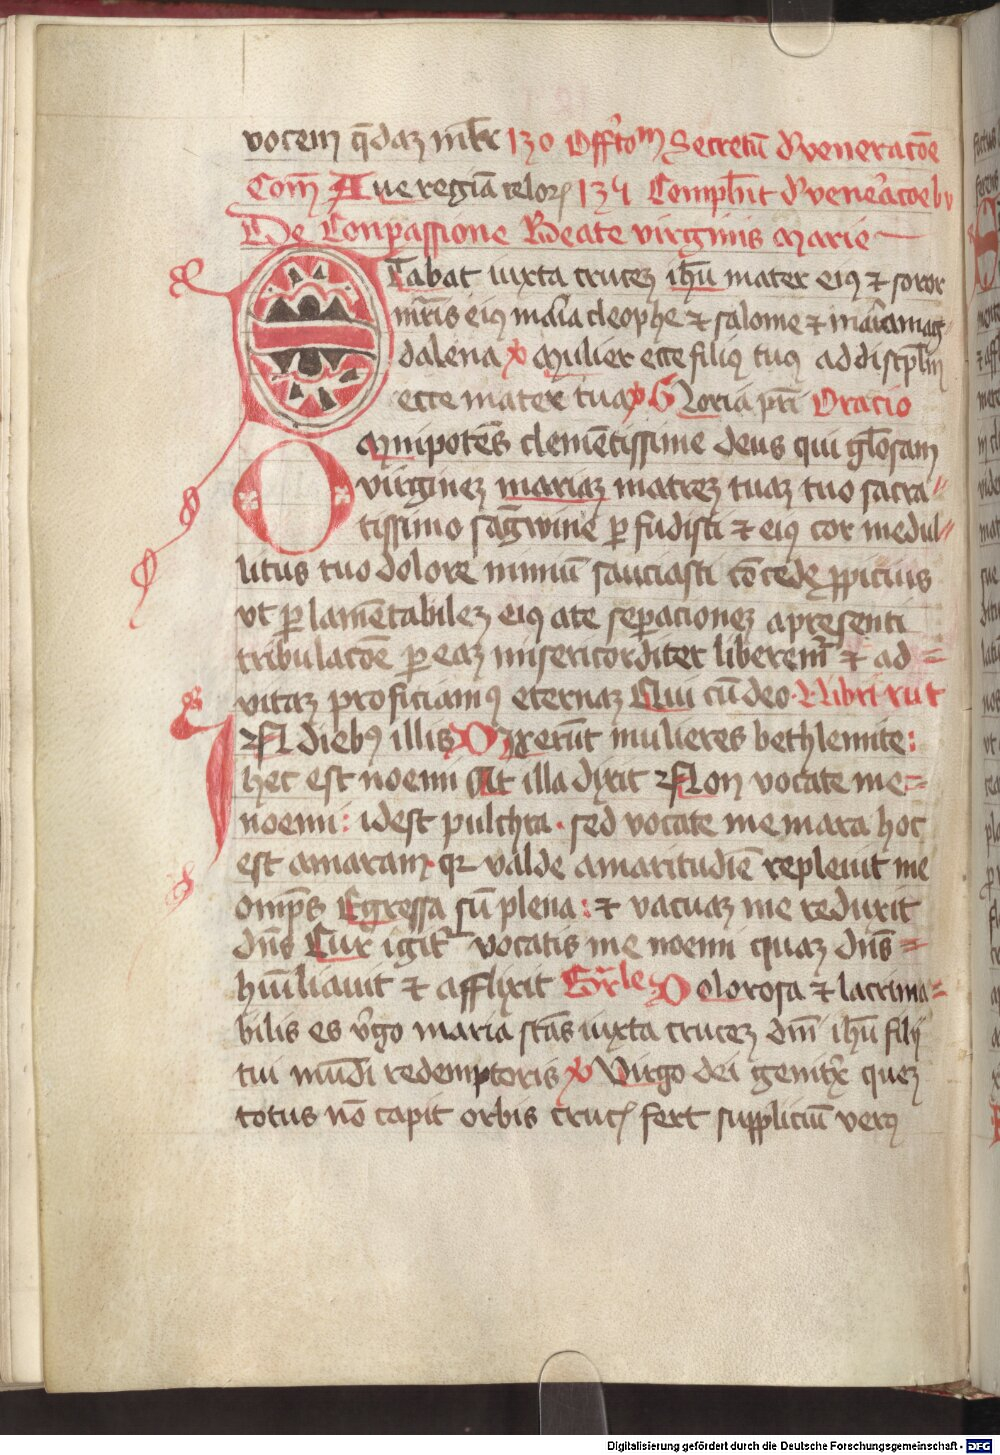 vocem q̄daʒ ml̄r 130 Offr̄toꝫ Secretū De veneracōe
Com̄ Aue regīa celoꝝ 134 Compl̄nt De veneracōe bv
De Conpassione Beate virginis Marie
Stabat iuxta cruceʒ ih̄u mater eiꝰ ⁊ soror
mr̄is eiꝰ mar̄ia cleophe ⁊ salome ⁊ mar̄ia mag
dalena ℣ Mulier ecce filiꝰ tuꝰ ad discipl̄m
ecce mater tua ℣ Gloria pr̄i Oracio
Omnipotēs clemētissime deus qui gl̄osam
virgineʒ mariaʒ matreʒ tuaʒ tuo sacra
tissimo sāgwine ꝑfudisti ⁊ eiꝰ cor medul
litus tuo dolore nimiū sauciasti cōcede ꝓpicius
vt ꝑ lamētabileʒ eiꝰ a te seꝑacioneʒ a presenti
tribulacōe ꝑ eaʒ misericorditer liberem̄ ⁊ ad
vitaʒ proficiamꝰ eternaʒ Qui cū deo libri rut
In diebꝰ illis Dixerūt mulieres bethlemite:
hec est noemi At illa dixit Non vocate me
noemi: idest pulchra · sed vocate me mara hoc
est amaram · qꝛ valde amaritudīe repleuit me
omp̄s Egressa sū plena: ⁊ vacuaʒ me reduxit
dn̄s Cur igit᷑ vocatis me noemi quaʒ dn̄s
hūiliauit ⁊ afflixit Gr̄le Dolorosa ⁊ lacrima
bilis es v̄go maria stās iuxta cruceʒ dn̄i ih̄u filij
tui mūdi redemptoris ℣ Virgo dei genitx̄ queʒ
totus nō capit orbis crucꝭ fert suppliciū verꝰ
Digitalisierung gefördert durch die Deutsche Forschungsgemeinschaft - DFG